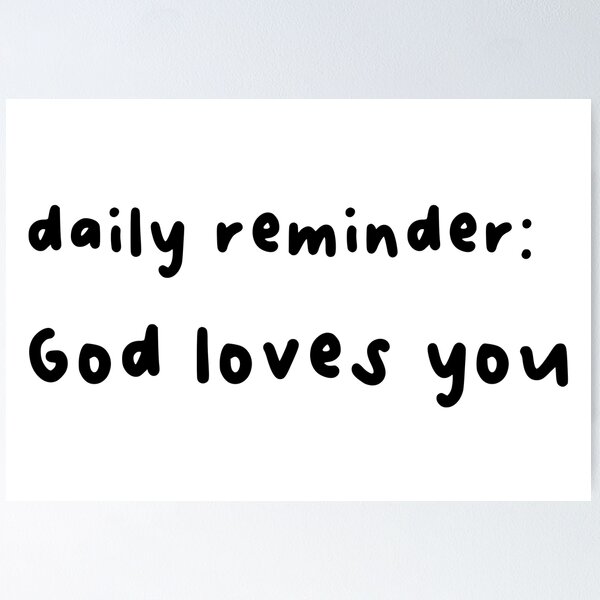 daily reminder:
God loves you